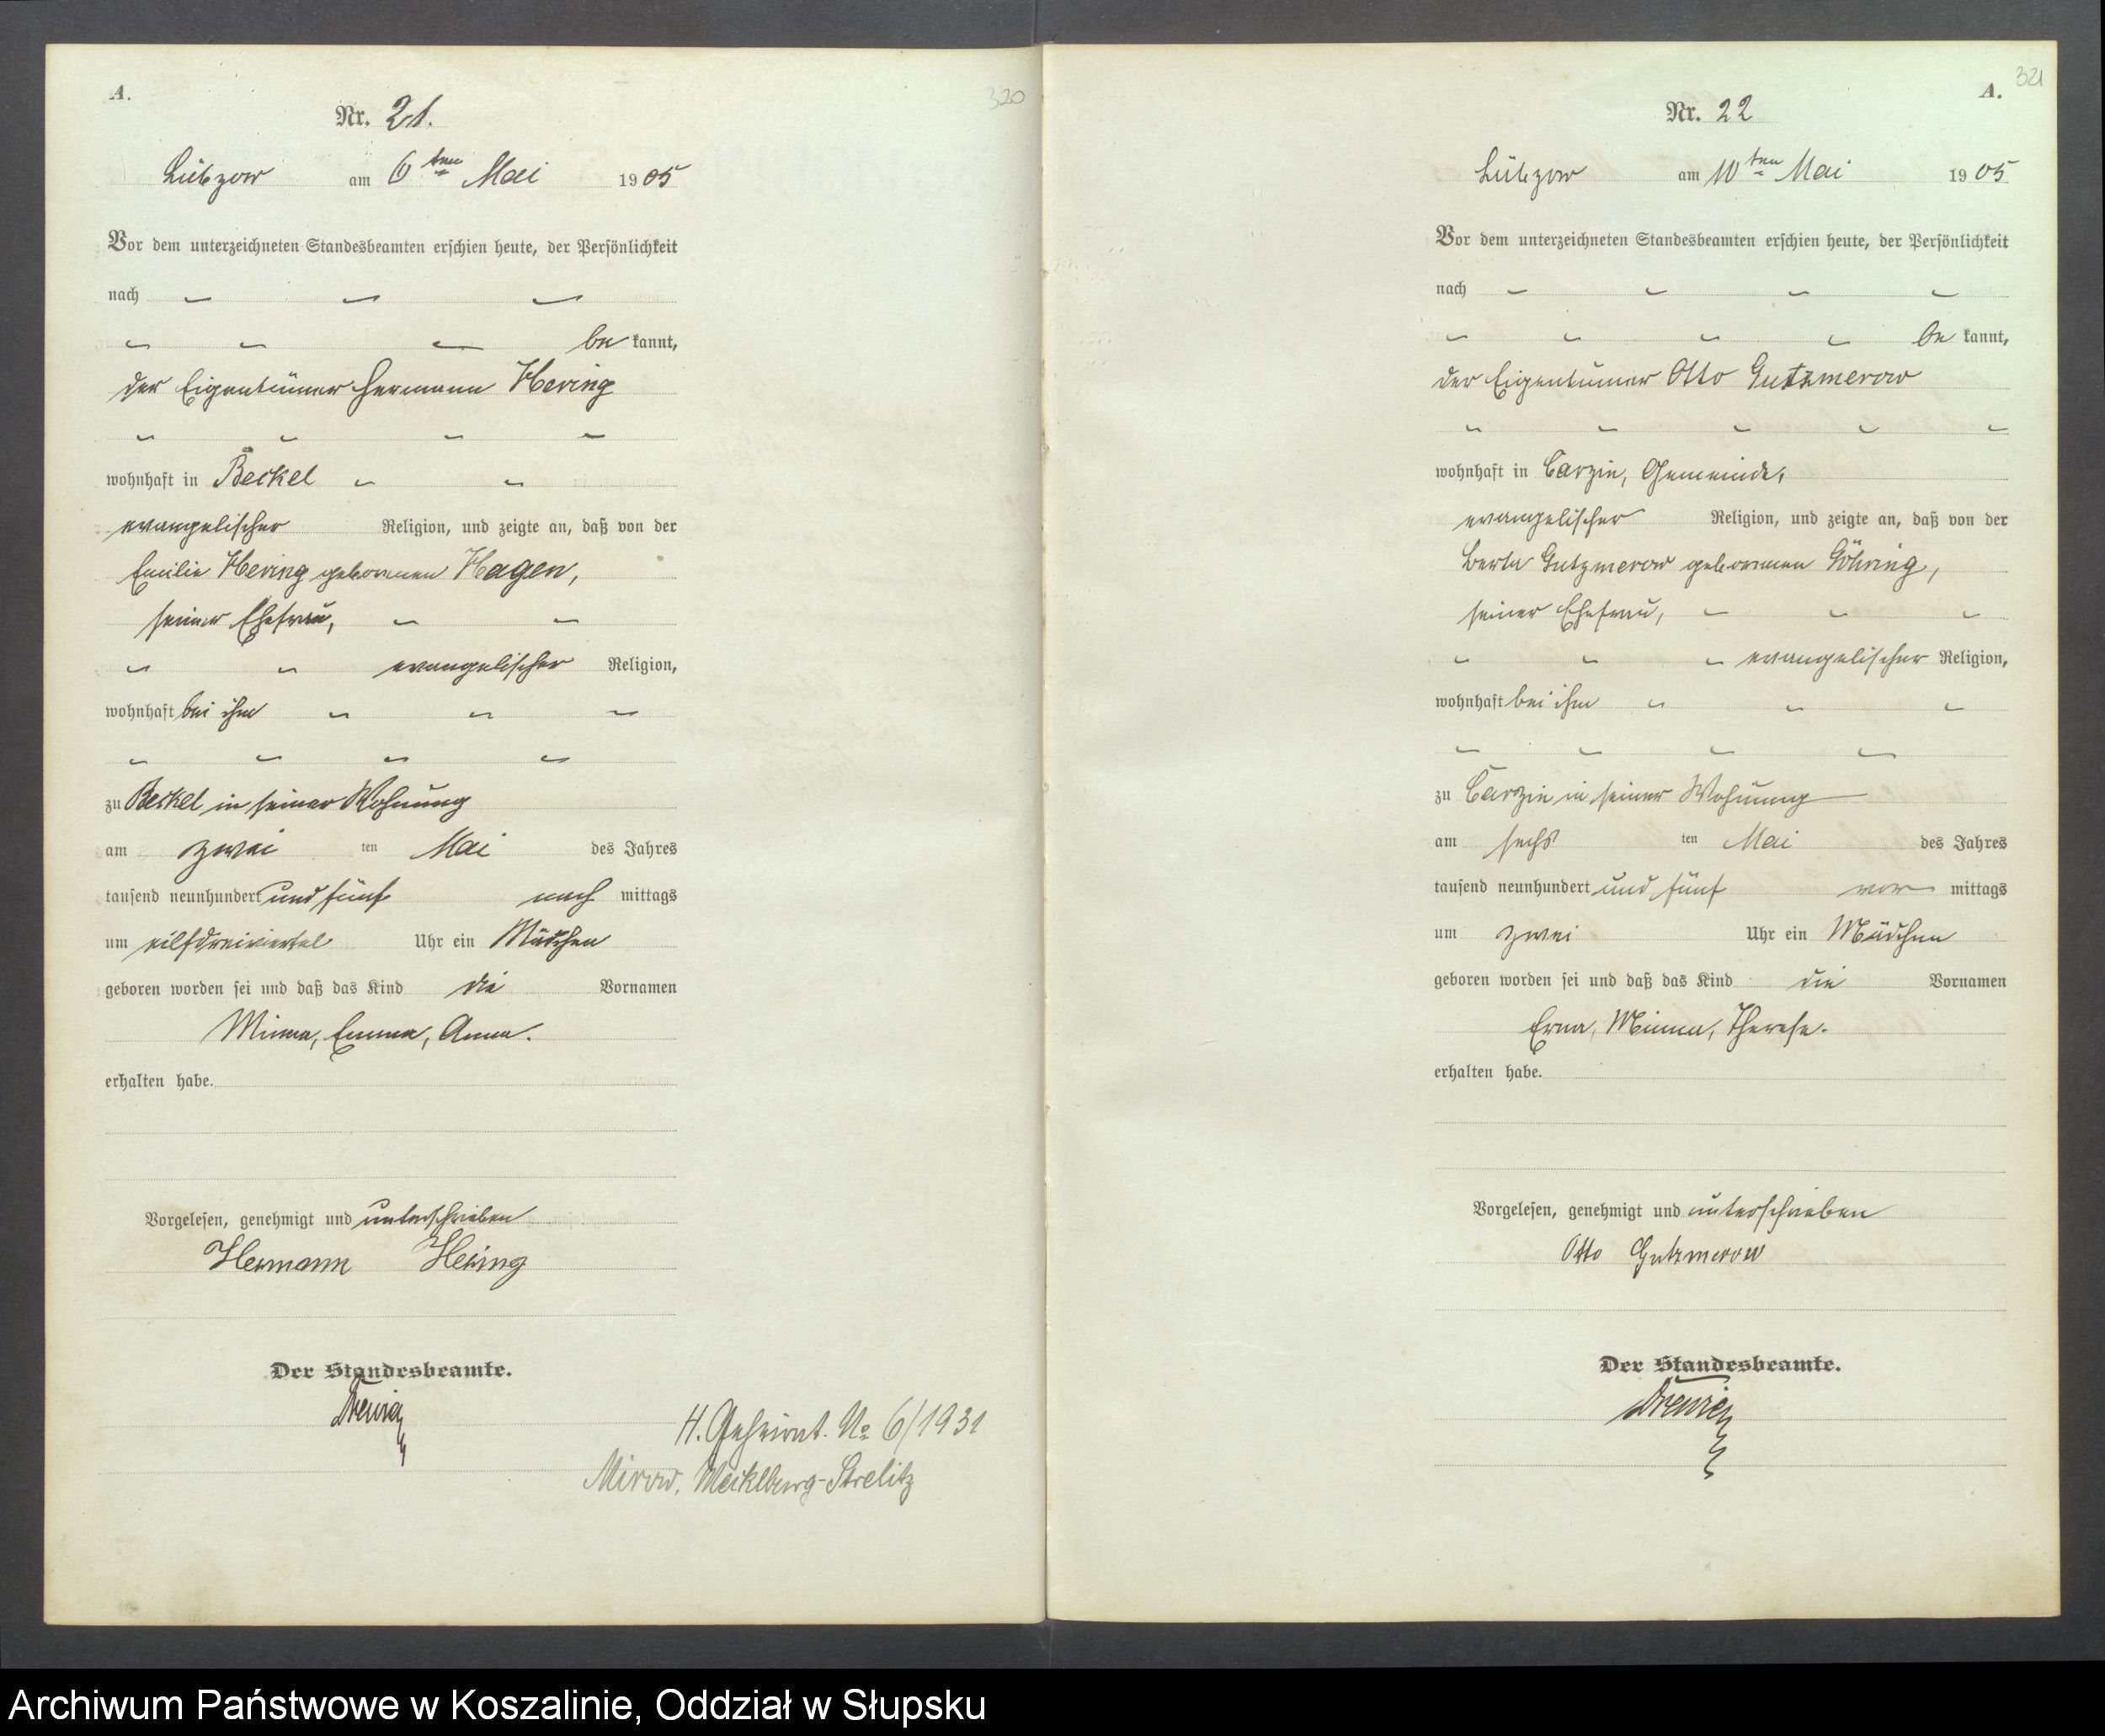 A.
320
Nr. 21.
Lübzow am 6ten Mai 1905
Vor dem unterzeichneten Standesbeamten erschien heute, der Persönlichkeit
nach
be kannt,
der Eigentümer Hermann Hering
wohnhaft in Beckel
evangelischer Religion, und zeigte an, daß von der
Emilie Hering geborenen Hagen,
seiner Ehefrau,
evangelischer Religion,
wohnhaft bei ihm
zu Beckel in seiner Wohnung
am zwei ten Mai des Jahres
tausend neunhundert und fünf nach mittags
um eilfdreiviertel Uhr ein Mädchen
geboren worden sei und daß das Kind die Vornamen
Minna, Emma, Anna.
erhalten habe.
Vorgelesen, genehmigt und unterschrieben
Hermann Hering
Der Standesbeamte.
H. Geheirat. No 6/1931
Mirow, Mecklburg-Strelitz
321
A.
Nr. 22
Lübzow am 10ten Mai 1905
Vor dem unterzeichneten Standesbeamten erschien heute, der Persönlichkeit
nach
be kannt,
der Eigentümer Otto Gutzmerow
wohnhaft in Carzin, Gemeinde,
evangelischer Religion, und zeigte an, daß von der
Berta Gutzmerow geborenen Göhring,
seiner Ehefrau,
evangelischer Religion,
wohnhaft bei ihm
zu Carzin in seiner Wohnung
am sechs ten Mai des Jahres
tausend neunhundert und fünf vor mittags
um zwei Uhr ein Mädchen
geboren worden sei und daß das Kind die Vornamen
Erna, Minna, Therese.
erhalten habe.
Vorgelesen, genehmigt und unterschrieben
Otto Gutzmerow
Der Standesbeamte.
Archiwum Państwowe w Koszalinie, Oddział w Słupsku